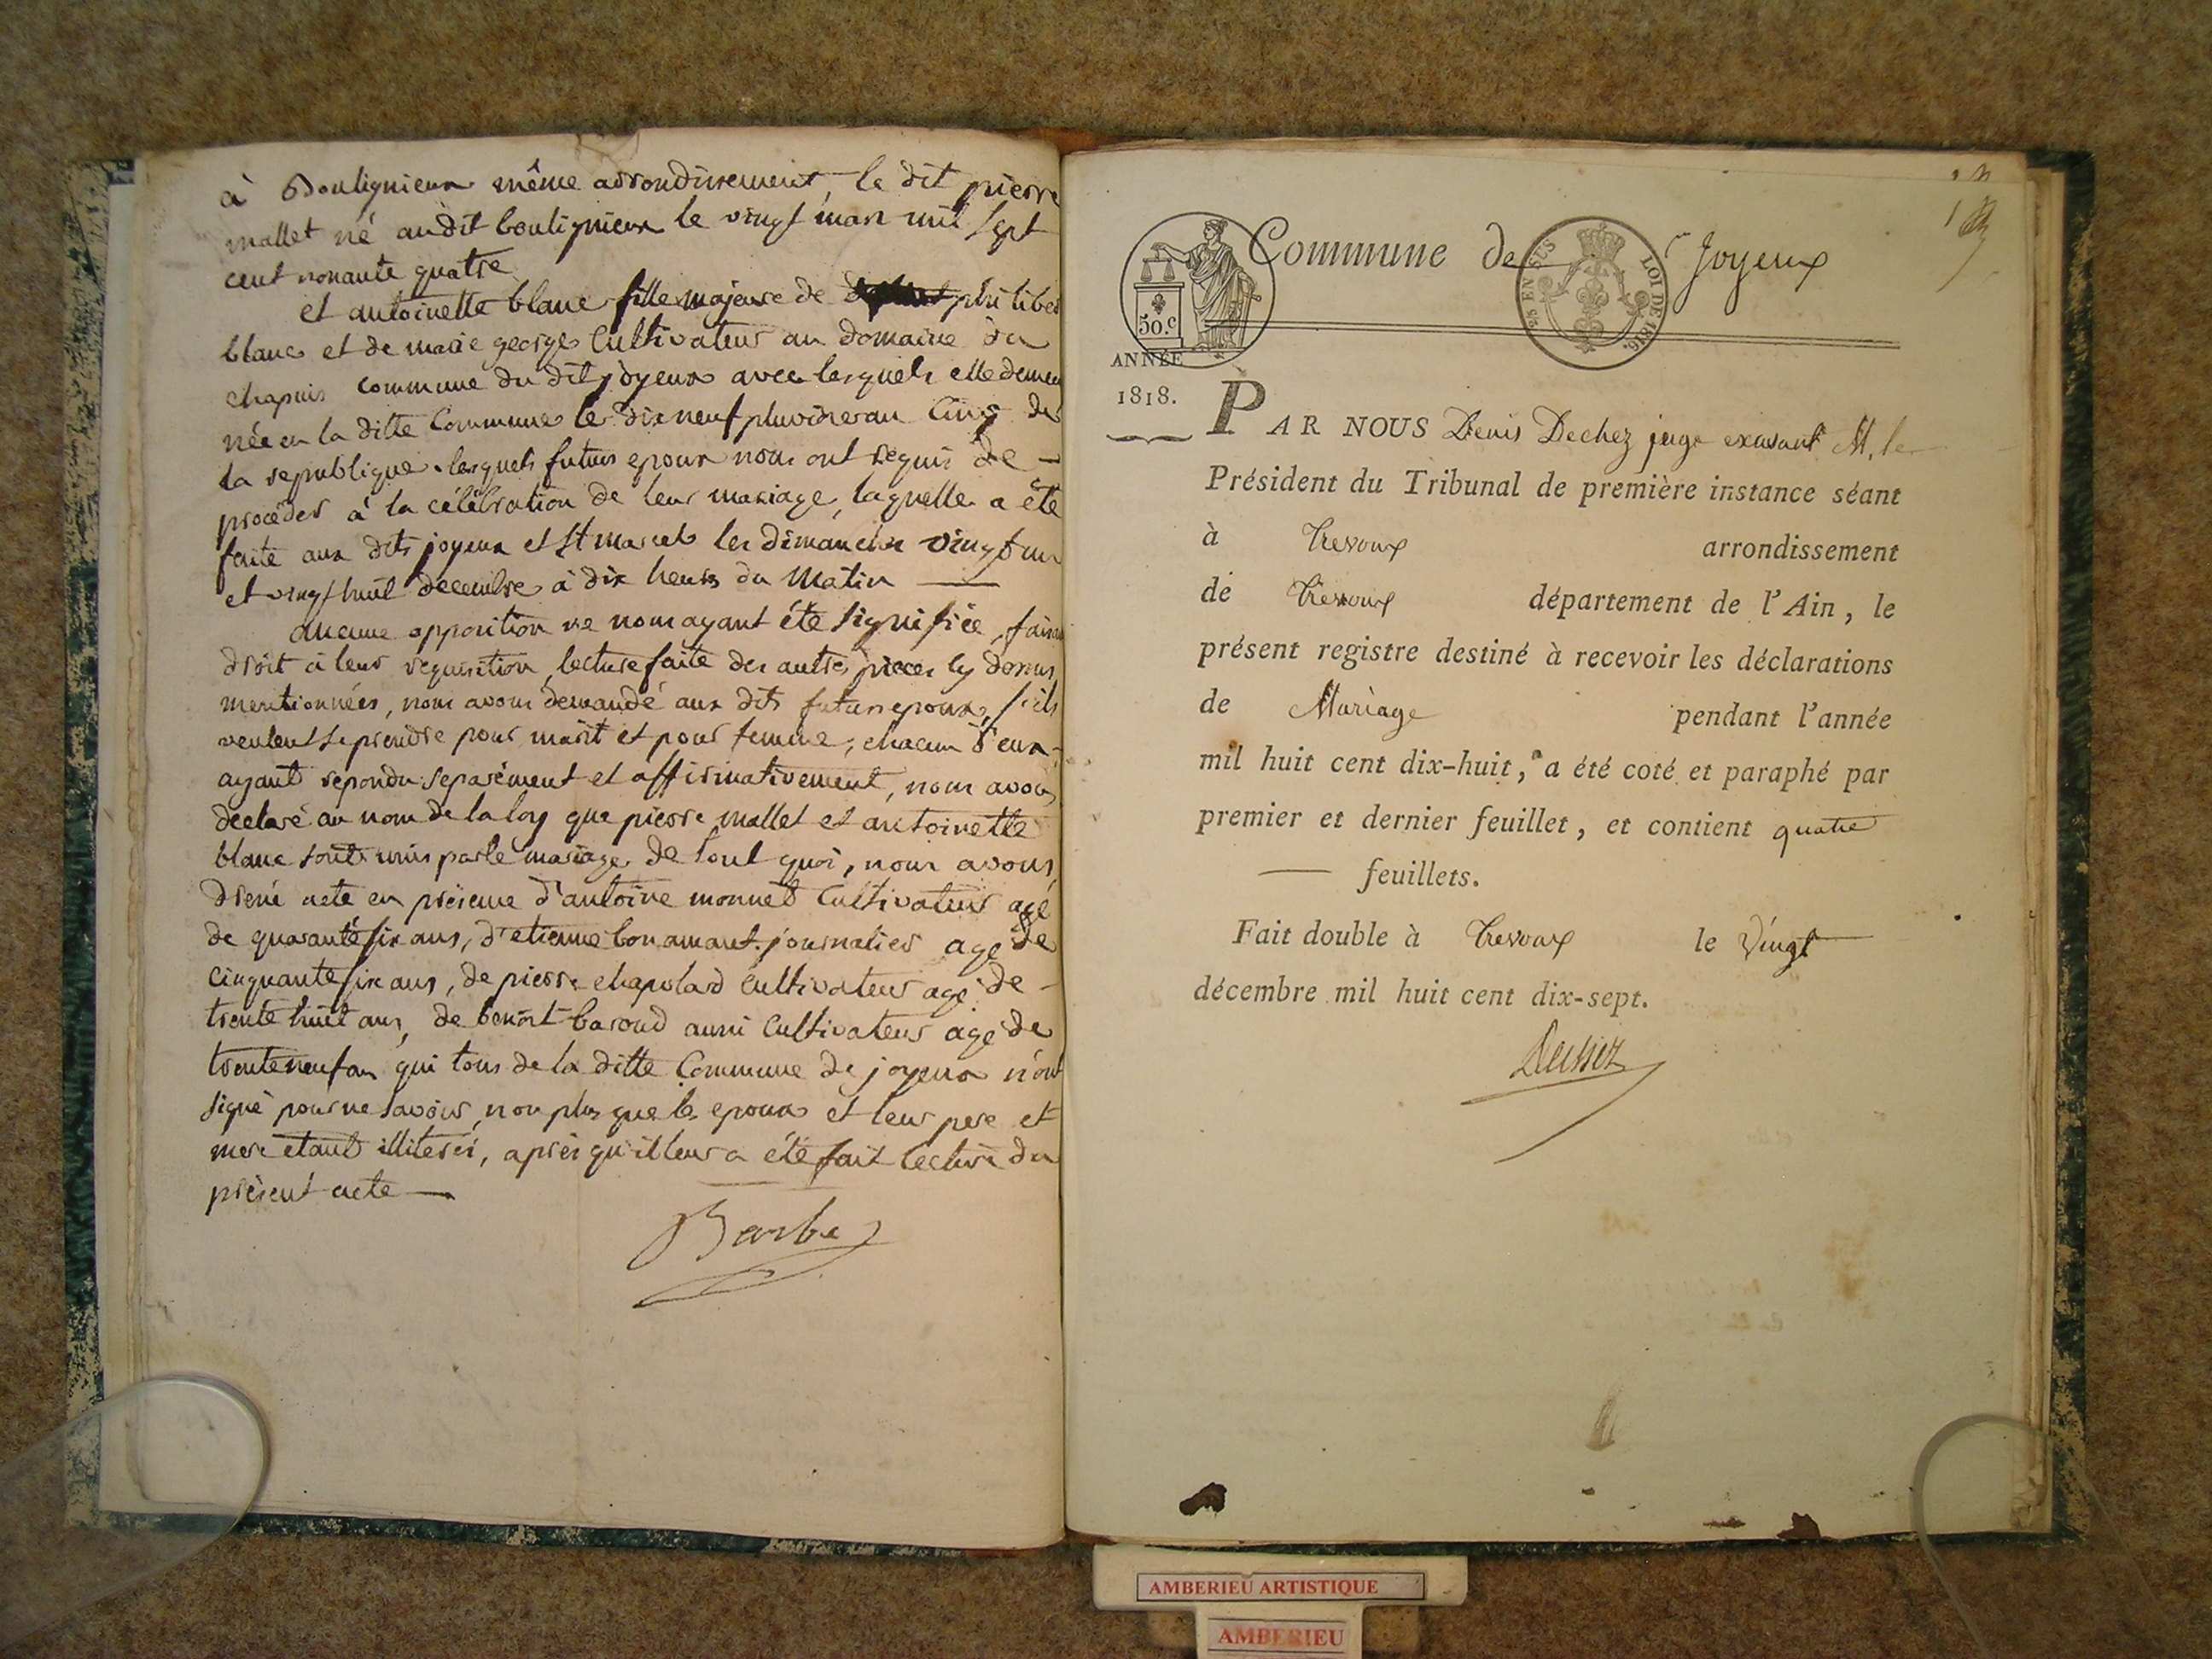 à Bouligneux même arrondissement, le dit pierre
mallet né audit bouligneux le vingt mars mil sept
cent nonante quatre
et antoinette blanc fille majeure de philiber
blanc et de marie george Cultivateur au domaine du
chapuis commune du dit joyeux avec lesquels elle demeu
née en la ditte Commune le dix neuf pluviose an Cinq de
la republique. lesquels futurs epoux nous ont requis de
procéder à la célébration de leur mariage, laquelle a été
faite aux dits joyeux et St marcel les dimanches vingt un
et vingt huit decembre à dix heures du Matin
aucune opposition ne nous ayant été signifiée, faisant
droit à leur requisition, lecture faite des autres pieces cy dessus
mentionnées, nous avons demandé aux dits futurs epoux, s'ils
veulent se prendre pour marit et pour femme, chacun d'eux
ayant repondu separément et affirmativement, nous avons
declaré au nom de la loy que pierre mallet et antoinette
blanc sont unis par le mariage. de tout quoi, nous avons
dressé acte en présence d'antoine monnet Cultivateur agé
de quarante six ans, d'etienne bonamant journalier agé de
cinquante six ans, de pierre chapolard Cultivateur agé de
trente huit ans, de benoit baroud aussi Cultivateur agé de
trente neuf ans qui tous de la ditte Commune de joyeux n'ont
signé pour ne savoir, non plus que les epoux et leur pere et
mere etant illiterés, après qu'il leur a été fait lecture du
présent acte
Barbe
Commune de Joyeux
50.c
EN SUS
LOI DE 1816.
ANNÉE
1818.
PAR NOUS Denis Dechez juge exerçant M. le
Président du Tribunal de première instance séant
à Trevoux arrondissement
de Trevoux département de l'Ain, le
présent registre destiné à recevoir les déclarations
de Mariage pendant l'année
mil huit cent dix-huit, a été coté et paraphé par
premier et dernier feuillet, et contient quatre
feuillets.
Fait double à Trevoux le Vingt
décembre mil huit cent dix-sept.
Dechez
AMBERIEU ARTISTIQUE
AMBERIEU